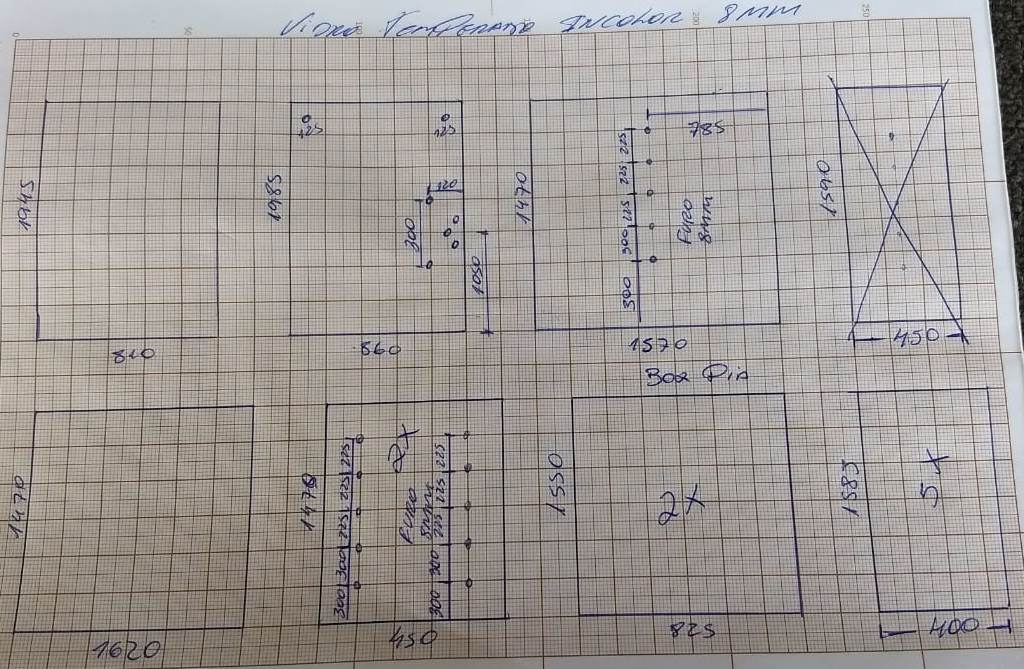 Vidro Temperado Incolor 8mm
0 50 200 250
1945
810
1985
125 125
120
300
1050
860
1470
785
225
225
225
300
300
Furo
8mm
1570
1590
450
Box Pia
1470
1620
1470
225
225
225
300
300
2x
Furo
8mm
225
225
225
300
300
450
1550
2x
825
1585
5x
400